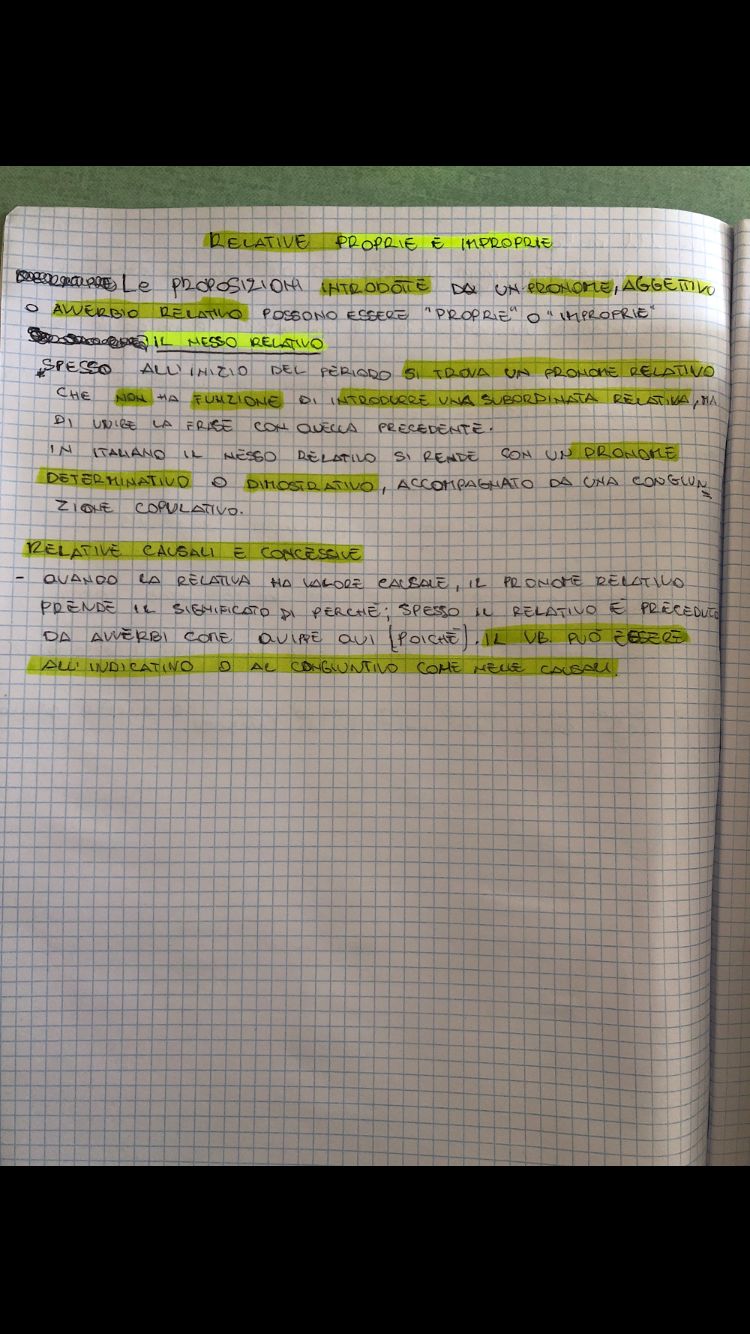 RELATIVE PROPRIE E IMPROPRIE
LE PROPOSIZIONI INTRODOTTE DA UN PRONOME, AGGETTIVO
O AVVERBIO RELATIVO POSSONO ESSERE "PROPRIE" O "IMPROPRIE"
IL NESSO RELATIVO
SPESSO ALL'INIZIO DEL PERIODO SI TROVA UN PRONOME RELATIVO
CHE NON HA FUNZIONE DI INTRODURRE UNA SUBORDINATA RELATIVA, MA
DI UNIRE LA FRASE CON QUELLA PRECEDENTE.
IN ITALIANO IL NESSO RELATIVO SI RENDE CON UN PRONOME
DETERMINATIVO O DIMOSTRATIVO, ACCOMPAGNATO DA UNA CONGIUN=
ZIONE COPULATIVO.
RELATIVE CAUSALI E CONCESSIVE
- QUANDO LA RELATIVA HA VALORE CAUSALE, IL PRONOME RELATIVO
PRENDE IL SIGNIFICATO DI PERCHÉ; SPESSO IL RELATIVO È PRECEDUTO
DA AVVERBI COME QUIPPE QUI (POICHÉ). IL VB. PUÒ ESSERE
ALL'INDICATIVO O AL CONGIUNTIVO COME NELLE CAUSALI.